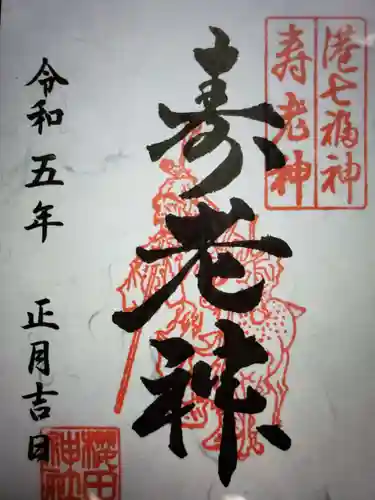 港七福神
寿老神
寿老神
令和五年 正月吉日
桜田
神社